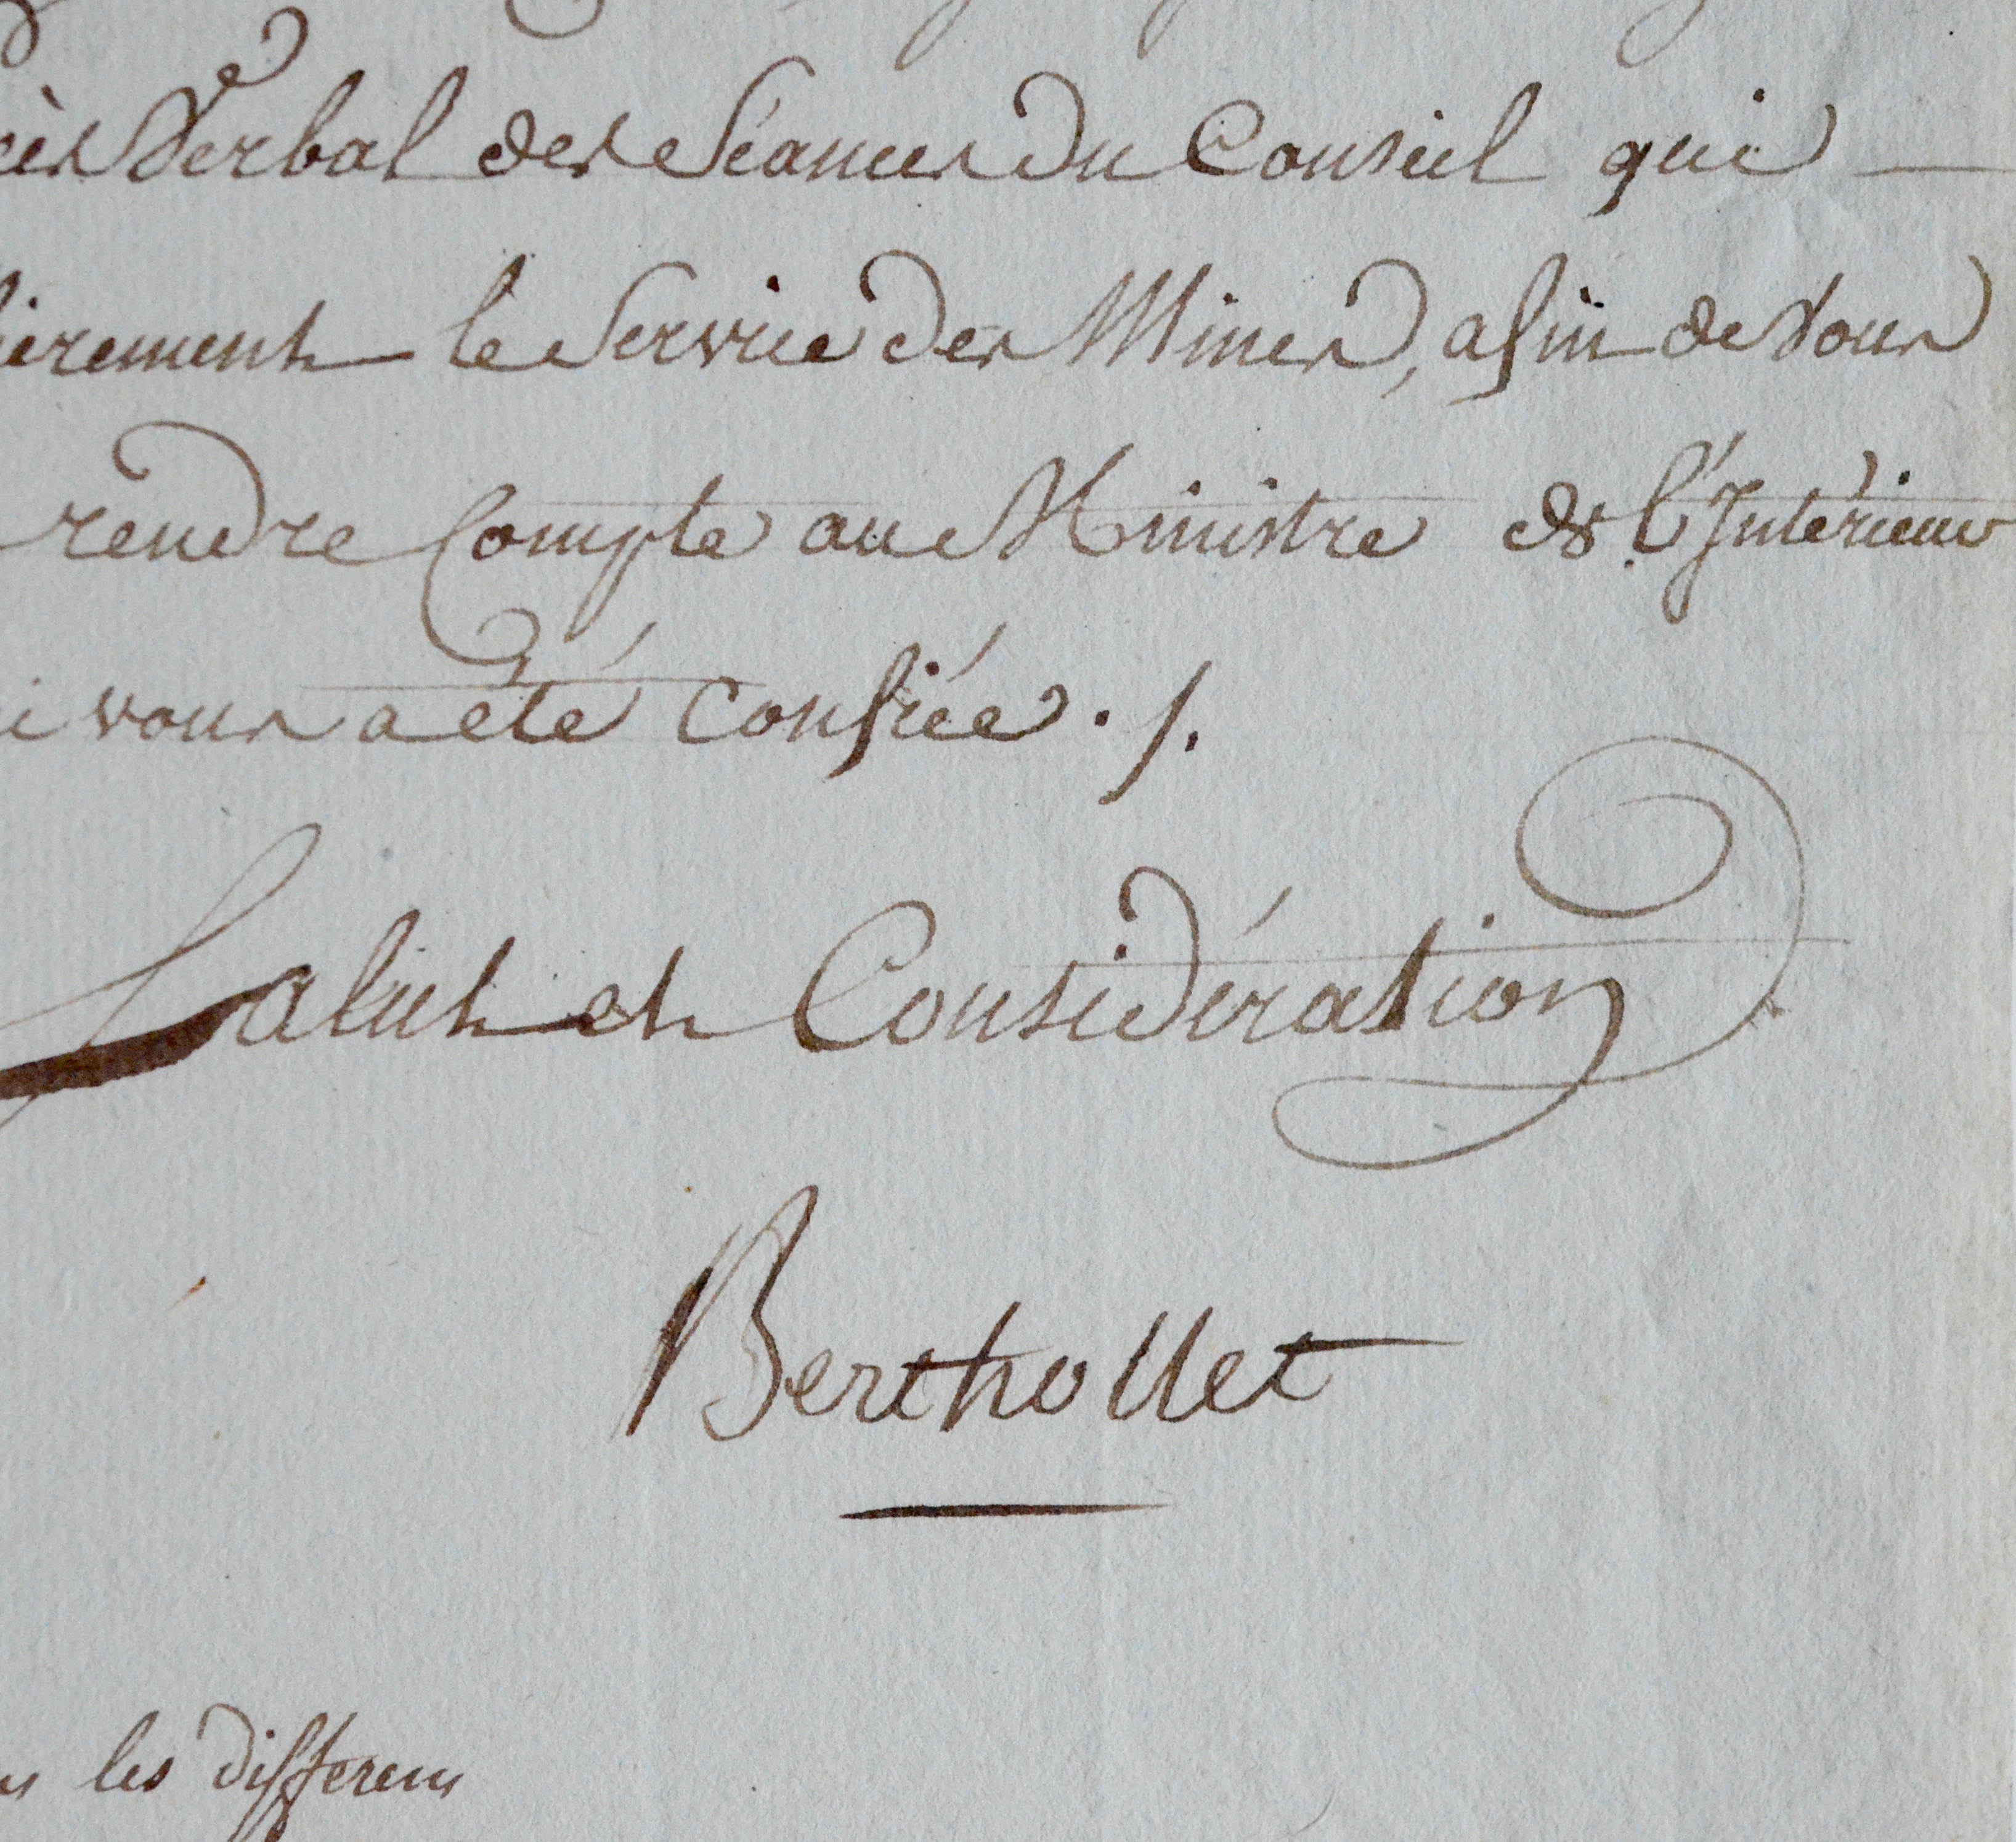 cès Verbal des Séances du Conseil qui
ièrement le Service des Mines, afin de Vous
rendre Compte au Ministre de l'Intérieur
i vous a été Confiée ./.
Salut et Considération
Berthollet
les differens